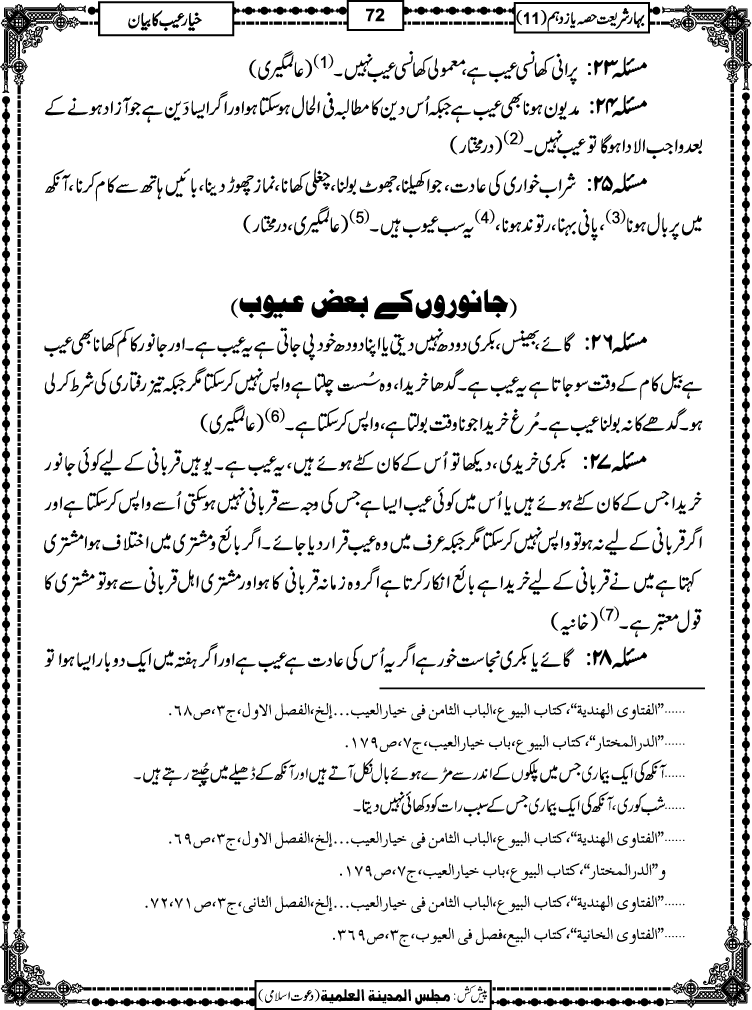 بہار شریعت حصہ یازدہم (11)
72
خیار عیب کا بیان
مسئلہ ۲۳: پرانی کھانسی عیب ہے، معمولی کھانسی عیب نہیں۔(1) (عالمگیری)
مسئلہ ۲۴: مدیون ہونا بھی عیب ہے جبکہ اُس دین کا مطالبہ فی الحال ہوسکتا ہو اور اگر ایسا دَین ہے جو آزاد ہونے کے
بعد واجب الادا ہوگا تو عیب نہیں۔(2) (درمختار)
مسئلہ ۲۵: شراب خواری کی عادت، جوا کھیلنا، جھوٹ بولنا، چغلی کھانا، نماز چھوڑ دینا، بائیں ہاتھ سے کام کرنا، آنکھ
میں پربال ہونا(3)، پانی بہنا، رتوند ہونا،(4) یہ سب عیوب ہیں۔(5) (عالمگیری، درمختار)
(جانوروں کے بعض عیوب)
مسئلہ ۲۶: گائے، بھینس، بکری دودھ نہیں دیتی یا اپنا دودھ خود پی جاتی ہے یہ عیب ہے۔ اور جانور کا کم کھانا بھی عیب
ہے بیل کام کے وقت سو جاتا ہے یہ عیب ہے۔ گدھا خریدا، وہ سُست چلتا ہے واپس نہیں کرسکتا مگر جبکہ تیز رفتاری کی شرط کرلی
ہو۔ گدھے کا نہ بولنا عیب ہے۔ مُرغ خریدا جو ناوقت بولتا ہے، واپس کرسکتا ہے۔(6) (عالمگیری)
مسئلہ ۲۷: بکری خریدی، دیکھا تو اُس کے کان کٹے ہوئے ہیں، یہ عیب ہے۔ یوہیں قربانی کے لیے کوئی جانور
خریدا جس کے کان کٹے ہوئے ہیں یا اُس میں کوئی عیب ایسا ہے جس کی وجہ سے قربانی نہیں ہوسکتی اُسے واپس کرسکتا ہے اور
اگر قربانی کے لیے نہ ہو تو واپس نہیں کرسکتا مگر جبکہ عرف میں وہ عیب قرار دیا جائے۔ اگر بائع و مشتری میں اختلاف ہوا مشتری
کہتا ہے میں نے قربانی کے لیے خریدا ہے بائع انکار کرتا ہے اگر وہ زمانہ قربانی کا ہو اور مشتری اہل قربانی سے ہو تو مشتری کا
قول معتبر ہے۔(7) (خانیہ)
مسئلہ ۲۸: گائے یا بکری نجاست خور ہے اگر یہ اُس کی عادت ہے عیب ہے اور اگر ہفتہ میں ایک دو بار ایسا ہوا تو
......"الفتاوی الھندیۃ"، کتاب البیوع، الباب الثامن فی خیار العیب...إلخ، الفصل الاول، ج۳، ص۶۸.
......"الدرالمختار"، کتاب البیوع، باب خیار العیب، ج۷، ص۱۷۹.
......آنکھ کی ایک بیماری جس میں پلکوں کے اندر سے مڑے ہوئے بال نکل آتے ہیں اور آنکھ کے ڈھیلے میں چُبھتے رہتے ہیں۔
......شب کوری، آنکھ کی ایک بیماری جس کے سبب رات کو دکھائی نہیں دیتا۔
......"الفتاوی الھندیۃ"، کتاب البیوع، الباب الثامن فی خیار العیب...إلخ، الفصل الاول، ج۳، ص۶۹.
و"الدرالمختار"، کتاب البیوع، باب خیار العیب، ج۷، ص۱۷۹.
......"الفتاوی الھندیۃ"، کتاب البیوع، الباب الثامن فی خیار العیب...إلخ، الفصل الثانی، ج۳، ص۷۱، ۷۲.
......"الفتاوی الخانیۃ"، کتاب البیع، فصل فی العیوب، ج۳، ص۳۶۹.
پیش کش: مجلس المدینۃ العلمیۃ (دعوت اسلامی)